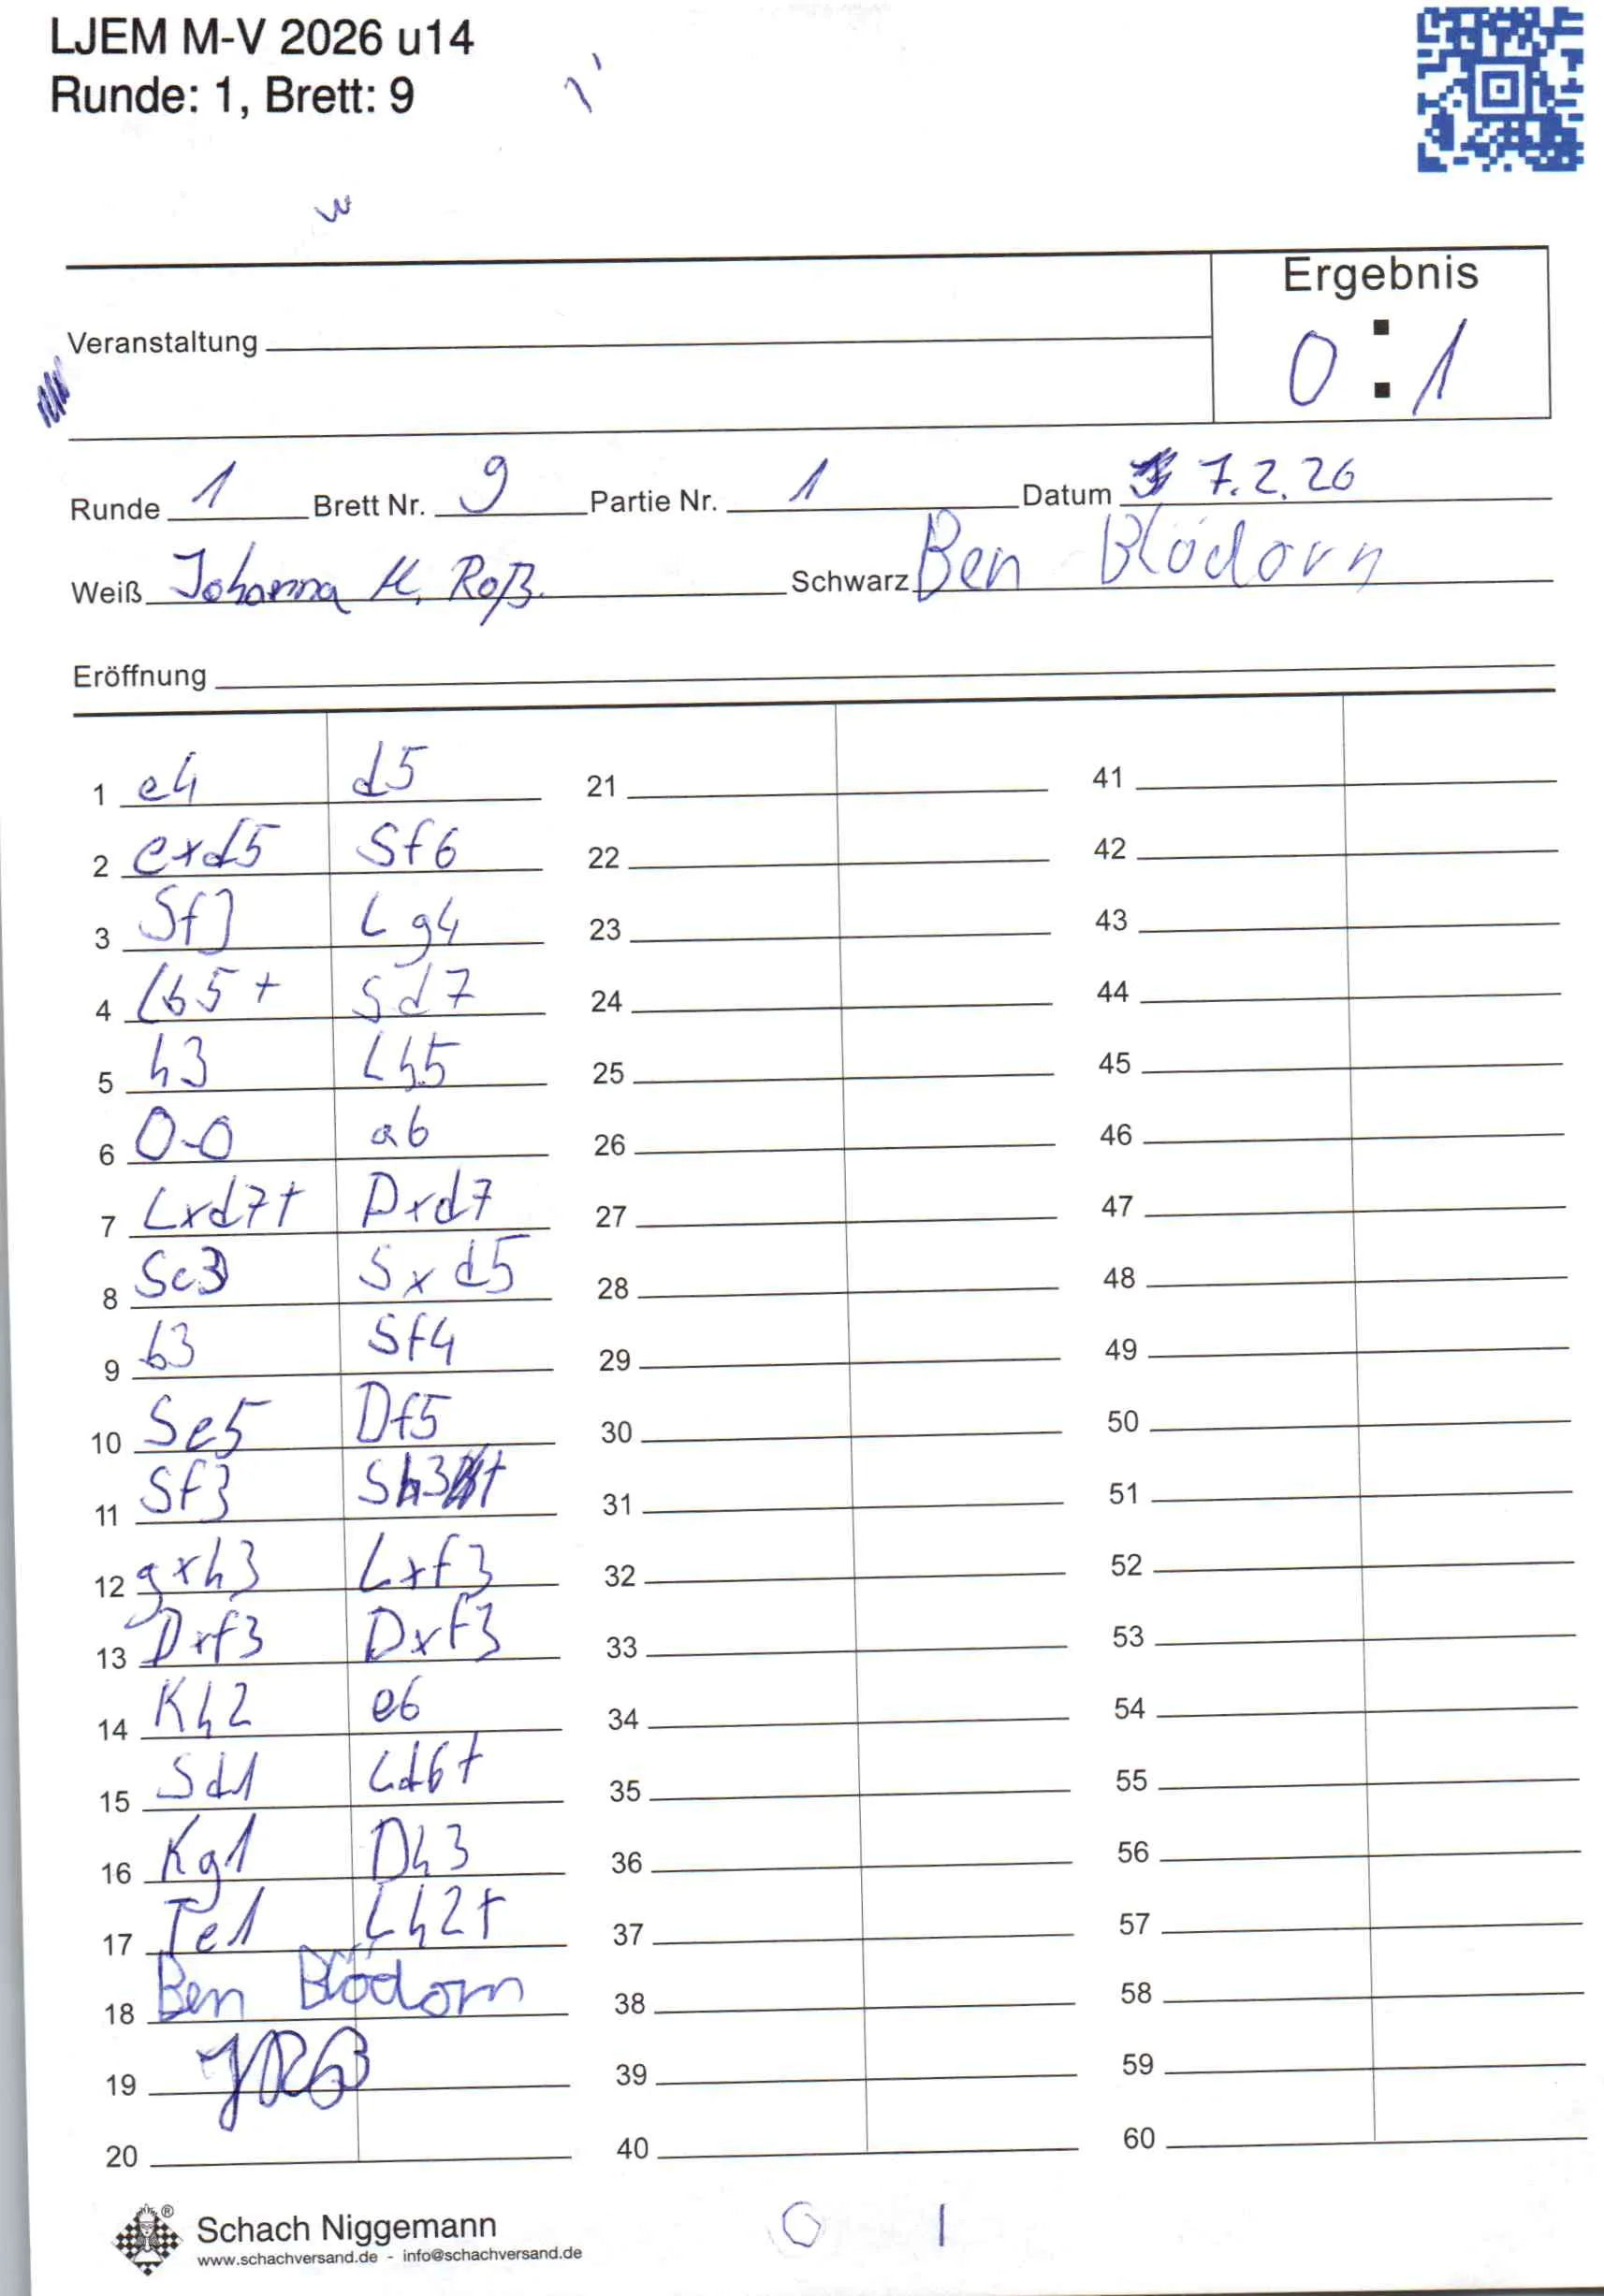 LJEM M-V 2026 u14
Runde: 1, Brett: 9
Ergebnis
Veranstaltung
0:1
Runde 1 Brett Nr. 9 Partie Nr. 1 Datum 7.2.26
Weiß Johanna M. Roß. Schwarz Ben Blödorn
Eröffnung
1 e4 d5 21 41
2 exd5 Sf6 22 42
3 Sf3 Lg4 23 43
4 Lb5+ Sd7 24 44
5 h3 Lh5 25 45
6 0-0 a6 26 46
7 Lxd7+ Dxd7 27 47
8 Sc3 Sxd5 28 48
9 b3 Sf4 29 49
10 Se5 Df5 30 50
11 Sf3 Sh3+ 31 51
12 gxh3 Lxf3 32 52
13 Dxf3 Dxf3 33 53
14 Kh2 e6 34 54
15 Sd1 Ld6+ 35 55
16 Kg1 Dh3 36 56
17 Te1 Lh2+ 37 57
18 Ben Blödorn 38 58
19 39 59
20 40 60
Schach Niggemann
www.schachversand.de - info@schachversand.de
0 1